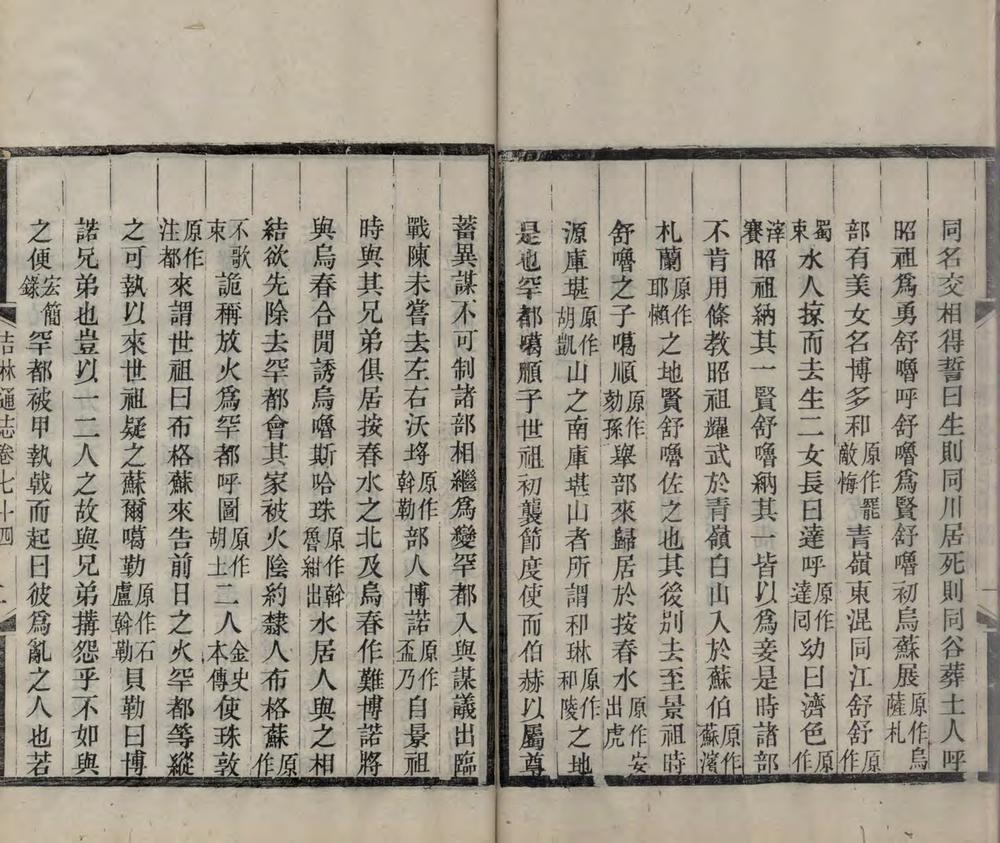 同名交相得誓曰生則同川居死則同谷葬土人呼
昭祖爲勇舒嚕呼舒嚕爲賢舒嚕初烏蘇展原作烏薩札
部有美女名博多和原作罷敵悔青嶺東混同江舒舒原作
蜀束水人掠而去生二女長曰達呼原作達囘幼曰濟色原作
滓賽昭祖納其一賢舒嚕納其一皆以爲妾是時諸部
不肯用條教昭祖耀武於青嶺白山入於蘇伯原作蘇濱
札蘭原作耶懶之地賢舒嚕佐之也其後別去至景祖時
舒嚕之子噶順原作劾孫舉部來歸居於按春水原作安出虎
源庫堪原作胡凱山之南庫堪山者所謂和琳原作和陵之地
是也罕都噶順子世祖初襲節度使而伯赫以屬尊
蓄異謀不可制諸部相繼爲變罕都入與謀議出臨
戰陳未嘗去左右沃埓原作斡勒部人博諾原作盃乃自景祖
時與其兄弟俱居按春水之北及烏春作難博諾將
與烏春合閒誘烏嚕斯哈珠原作斡魯紺出水居人與之相
結欲先除去罕都會其家被火陰約隸人布格蘇原作
不歌束詭稱放火爲罕都呼圖原作胡土二人金史本傳使珠敦
原作注都來謂世祖曰布格蘇來告前日之火罕都等縱
之可執以來世祖疑之蘇爾噶勒原作石盧斡勒貝勒曰博
諾兄弟也豈以一二人之故與兄弟搆怨乎不如與
之便宏簡錄罕都被甲執戟而起曰彼爲亂之人也若
吉林通志卷七十四 二